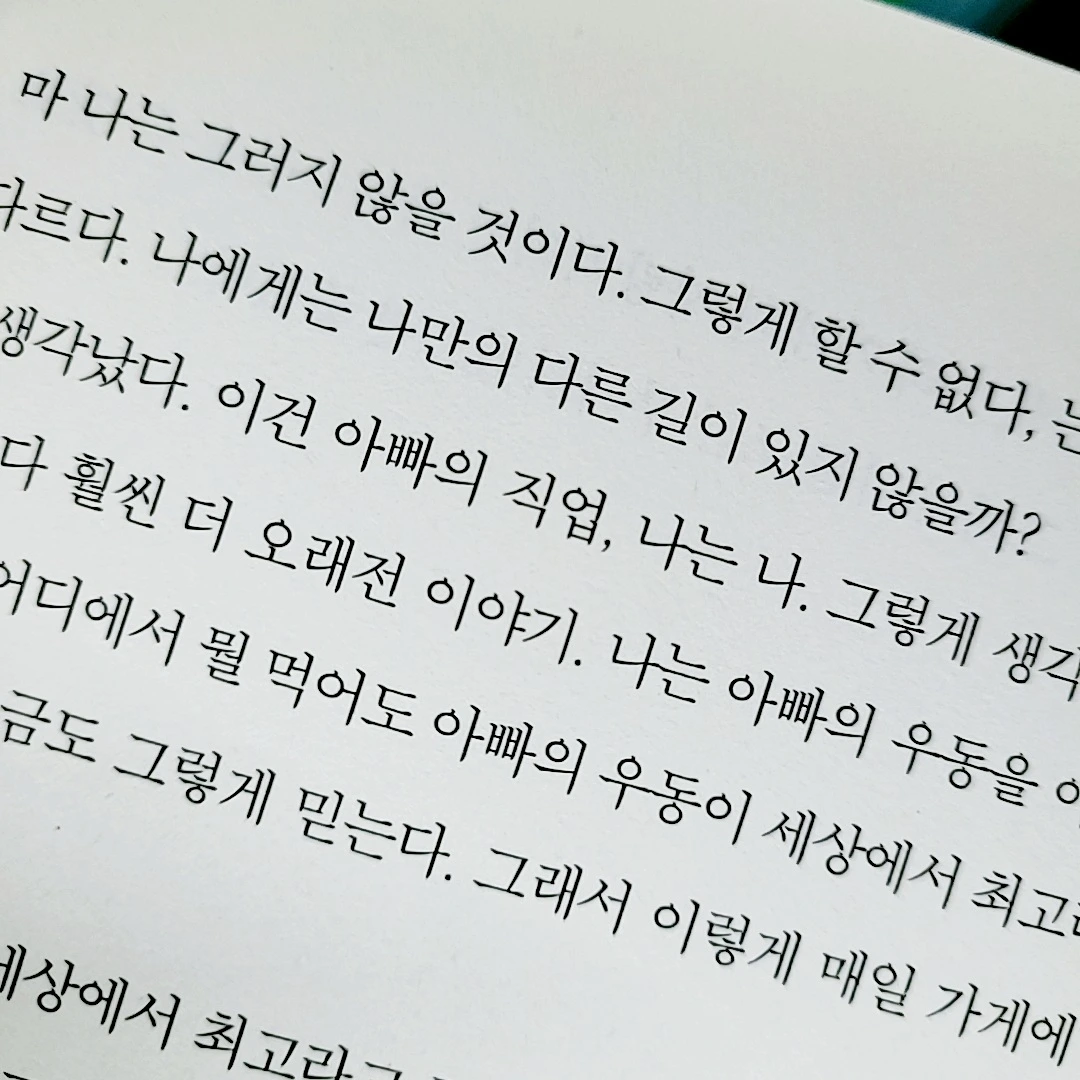 마 나는 그러지 않을 것이다. 그렇게 할 수 없다,
다르다. 나에게는 나만의 다른 길이 있지 않을까?
생각났다. 이건 아빠의 직업, 나는 나. 그렇게 생각
다 훨씬 더 오래전 이야기. 나는 아빠의 우동을
어디에서 뭘 먹어도 아빠의 우동이 세상에서 최고
금도 그렇게 믿는다. 그래서 이렇게 매일 가게에
세상에서 최고라고